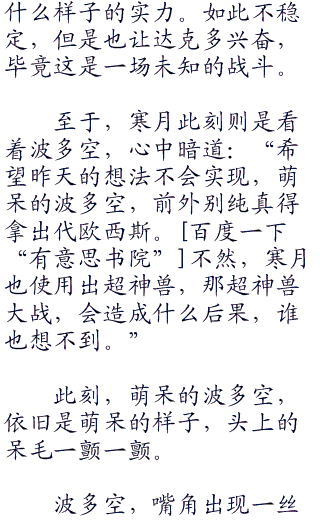 什么样子的实力。如此不稳
定，但是也让达克多兴奋，
毕竟这是一场未知的战斗。
至于，寒月此刻则是看
着波多空，心中暗道：“希
望昨天的想法不会实现，萌
呆的波多空，前外别纯真得
拿出代欧西斯。[百度一下
“有意思书院”]不然，寒月
也使用出超神兽，那超神兽
大战，会造成什么后果，谁
也想不到。”
此刻，萌呆的波多空，
依旧是萌呆的样子，头上的
呆毛一颤一颤。
波多空，嘴角出现一丝